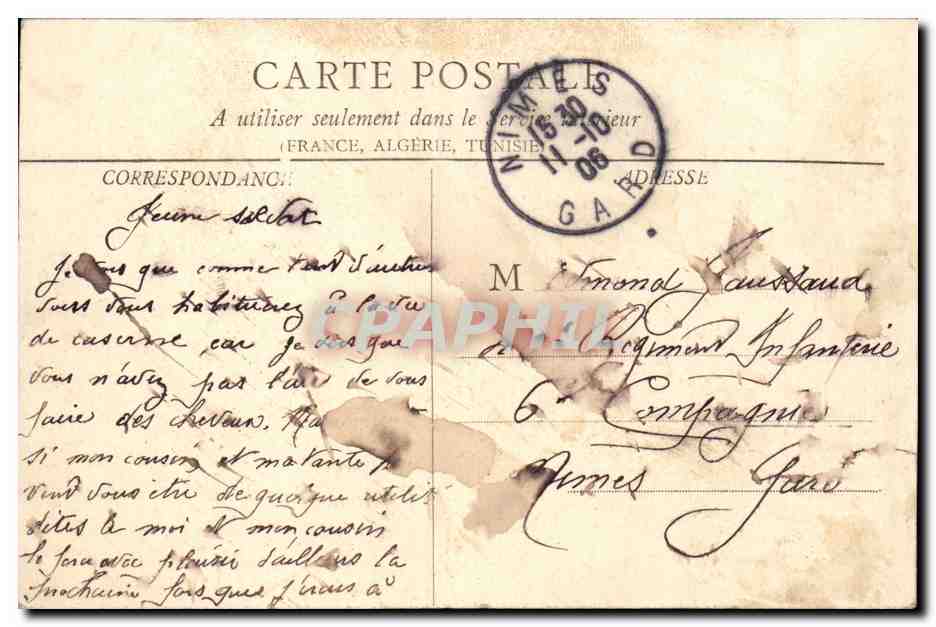 CARTE POSTALE
A utiliser seulement dans le Service Intérieur
(FRANCE, ALGÉRIE, TUNISIE)
NIMES
15 30
11 -10
06
GARD
CORRESPONDANCE
ADRESSE
Jeune soldat
Je vois que comme tant d'autres
vous vous habituez à la vie
de caserne car je vois que
vous n'avez pas l'air de vous
faire des cheveux.
si mon cousin et ma tante
vous être de quelque utilité
dites le moi et mon cousin
le fera avec plaisir d'ailleurs la
prochaine fois que j'irais à
M Edmond Jaussaud
Regiment Infanterie
6e Compagnie
Nimes Gard
CPAPHIL